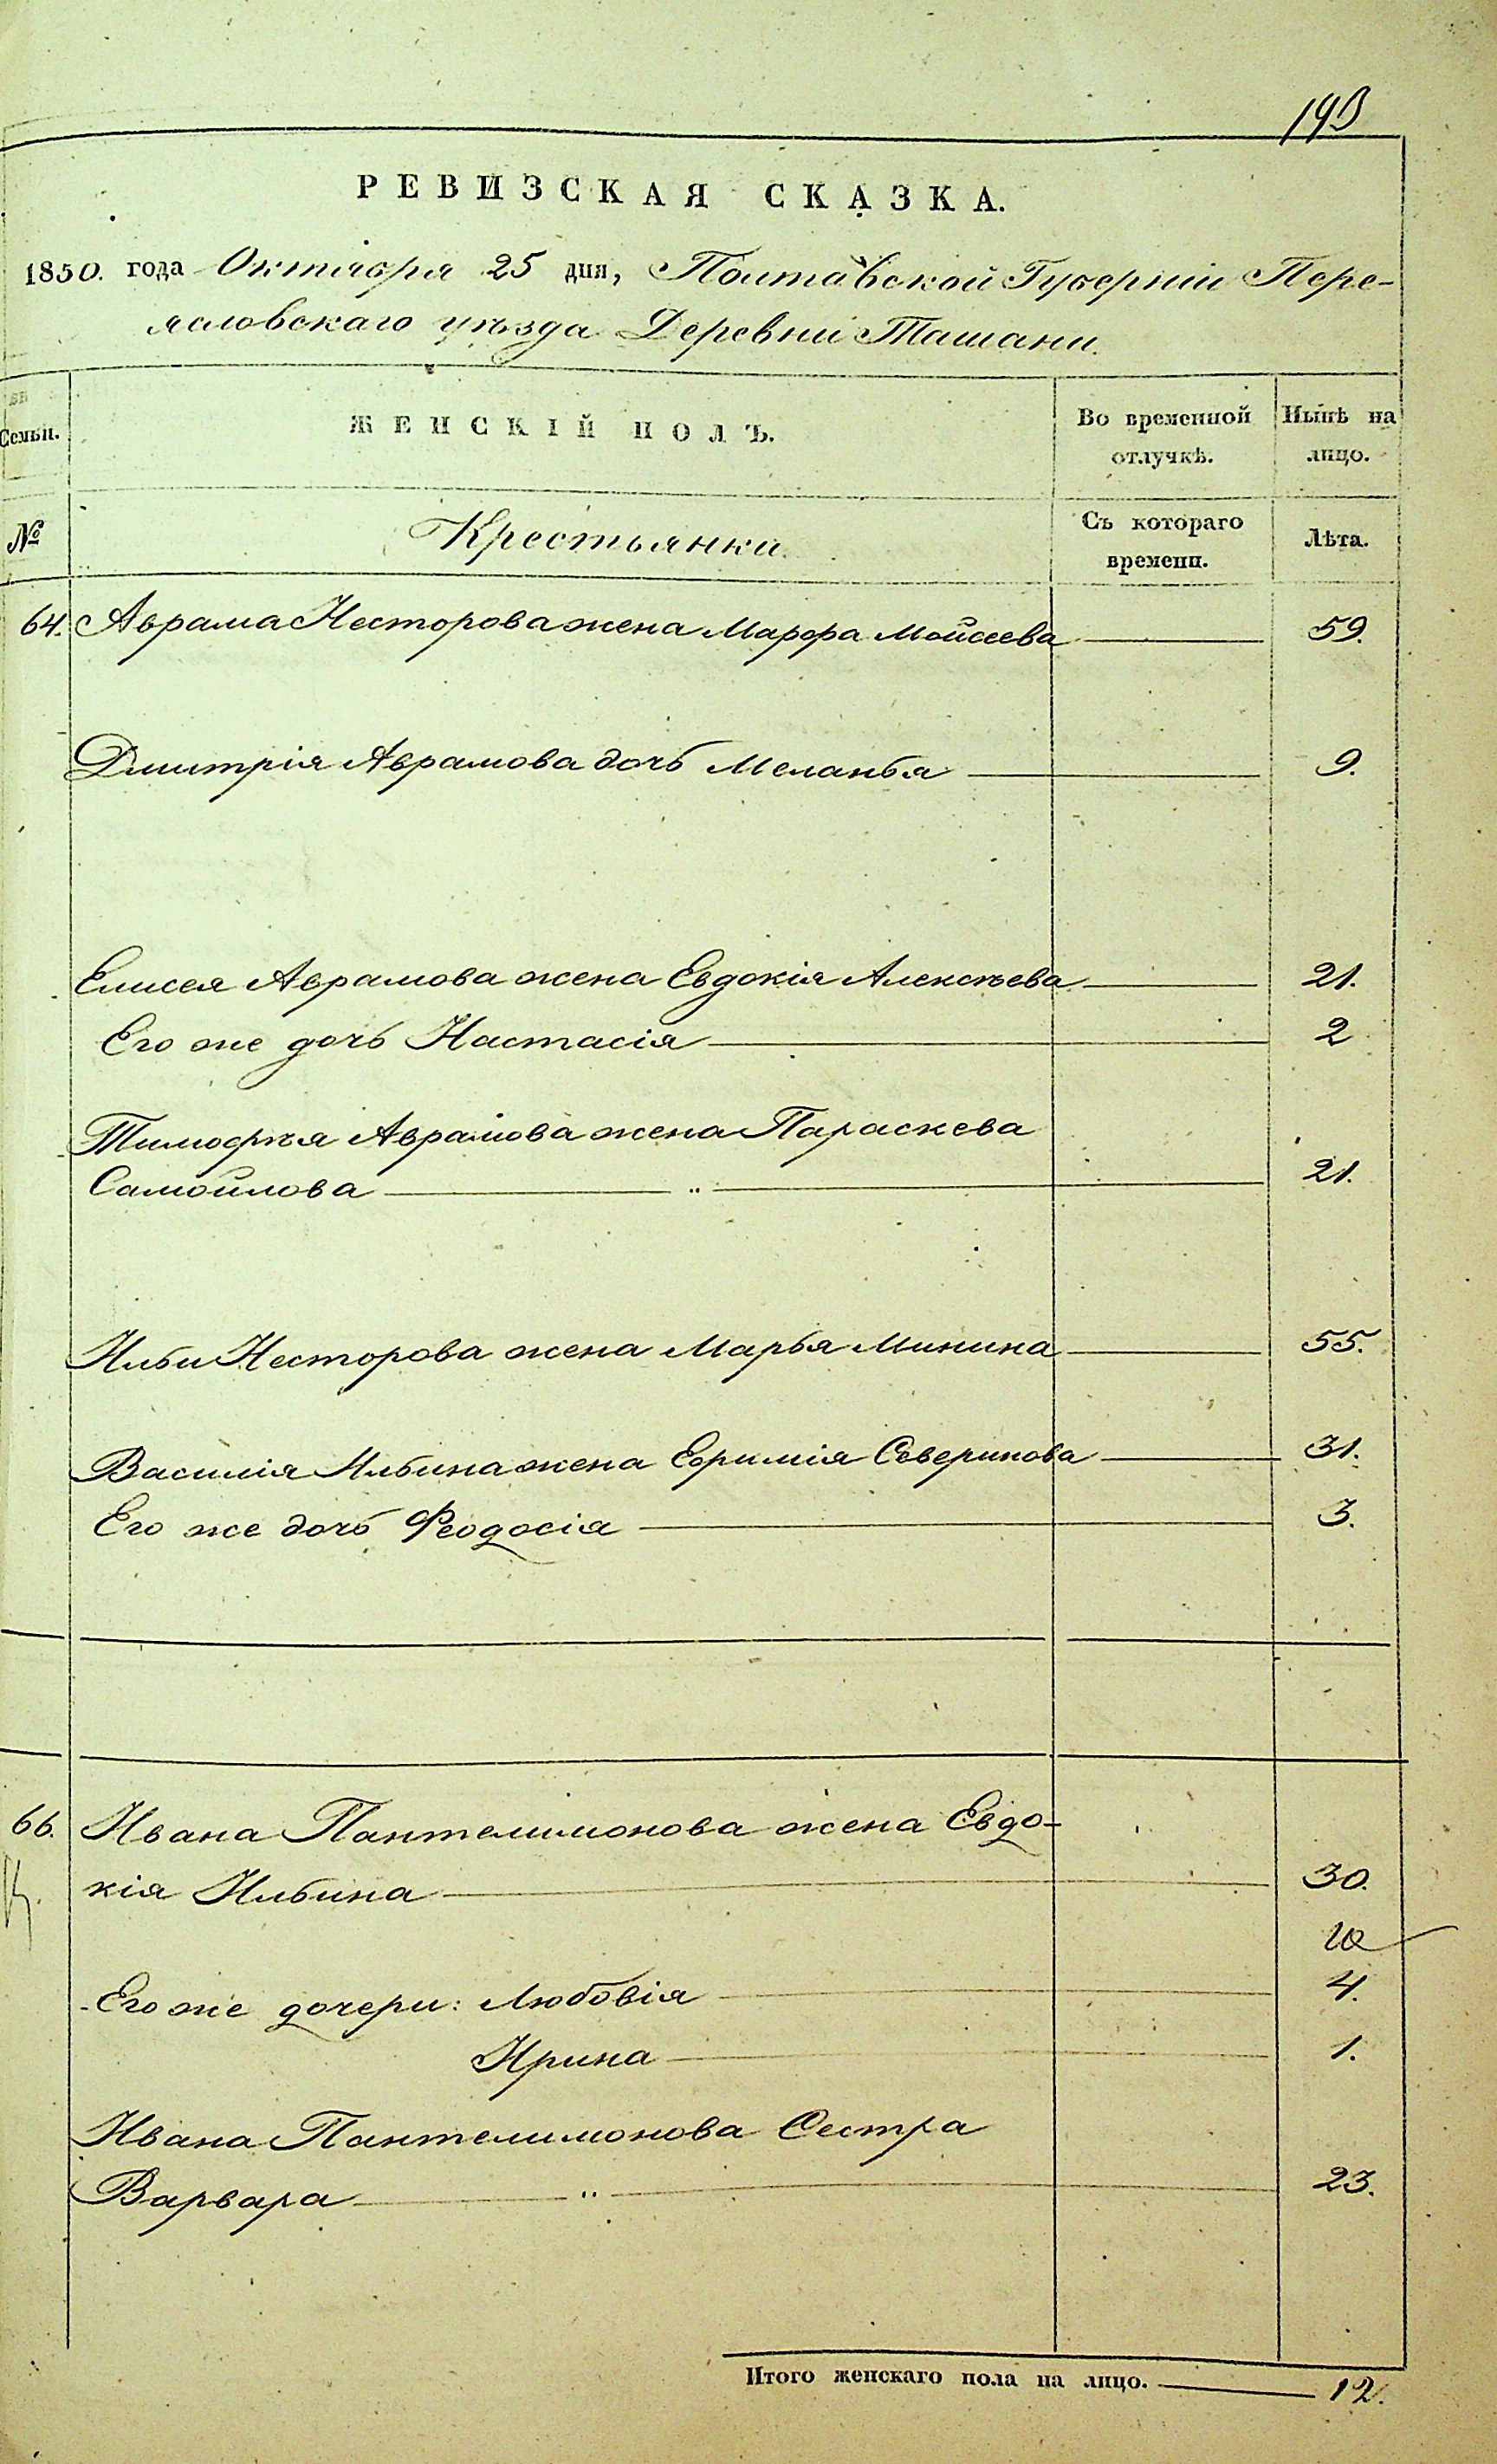 193
РЕВИЗСКАЯ СКАЗКА.
1850. года Октября 25 дня, Полтавской Губерніи Пере-
яславскаго уѣзда Деревни Ташани.
Семьи.
ЖЕНСКІЙ ПОЛЪ.
Во временной
отлучкѣ.
Нынѣ на
лицо.
№
Крестьянки
Съ котораго
времени.
Лѣта.
64. Аврама Несторова жена Марфа Мойсеева 59.
Дмитрія Аврамова дочь Меланья 9.
Елисея Аврамова жена Евдокія Алексѣева 21.
Его же дочь Настасія 2
Тимофѣя Аврамова жена Параскева
Самойлова 21.
Ильи Несторова жена Марья Минина 55.
Василія Ильина жена Ефимія Северинова 31.
Его же дочь Феодосія 3.
66. Ивана Пантелимонова жена Евдо-
кія Ильина 30.
10
Его же дочери: Любовія 4.
Ирина 1.
Ивана Пантелимонова Сестра
Варвара 23.
Итого женскаго пола на лицо. 12.